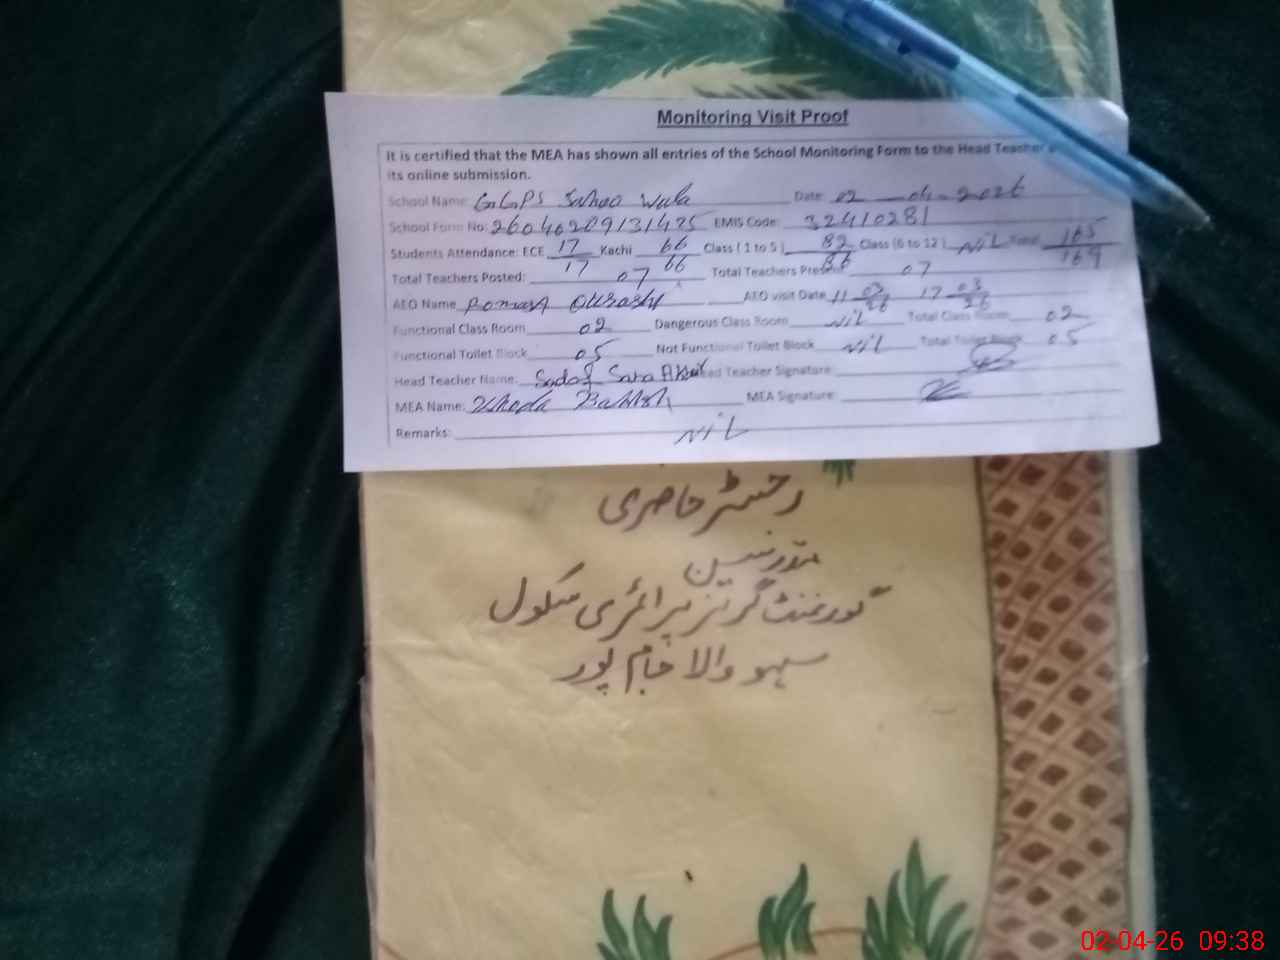 Monitoring Visit Proof
It is certified that the MEA has shown all entries of the School Monitoring Form to the Head Teacher
its online submission.
School Name: GGPS Sahoo Wala Date: 02-04-2026
School Form No: 26040209131425 EMIS Code: 32410281
Students Attendance: ECE 17/17 Kachi 66/66 Class (1 to 5) 82/86 Class (6 to 12) NiL Total 165/169
Total Teachers Posted: 07 Total Teachers Present 07
AEO Name AEO visit Date 11 03/26 17 03/26
Functional Class Room 02 Dangerous Class Room NiL Total Class Room 02
Functional Toilet Block 05 Not Functional Toilet Block NiL Total Toilet Block 05
Head Teacher Name: Sadaf Sana Head Teacher Signature:
MEA Name: Khuda Bakhsh MEA Signature:
Remarks: NiL
رجسٹر حاضری
مدرسین
گورنمنٹ گرلز پرائمری سکول
سہو والا جام پور
02-04-26 09:38